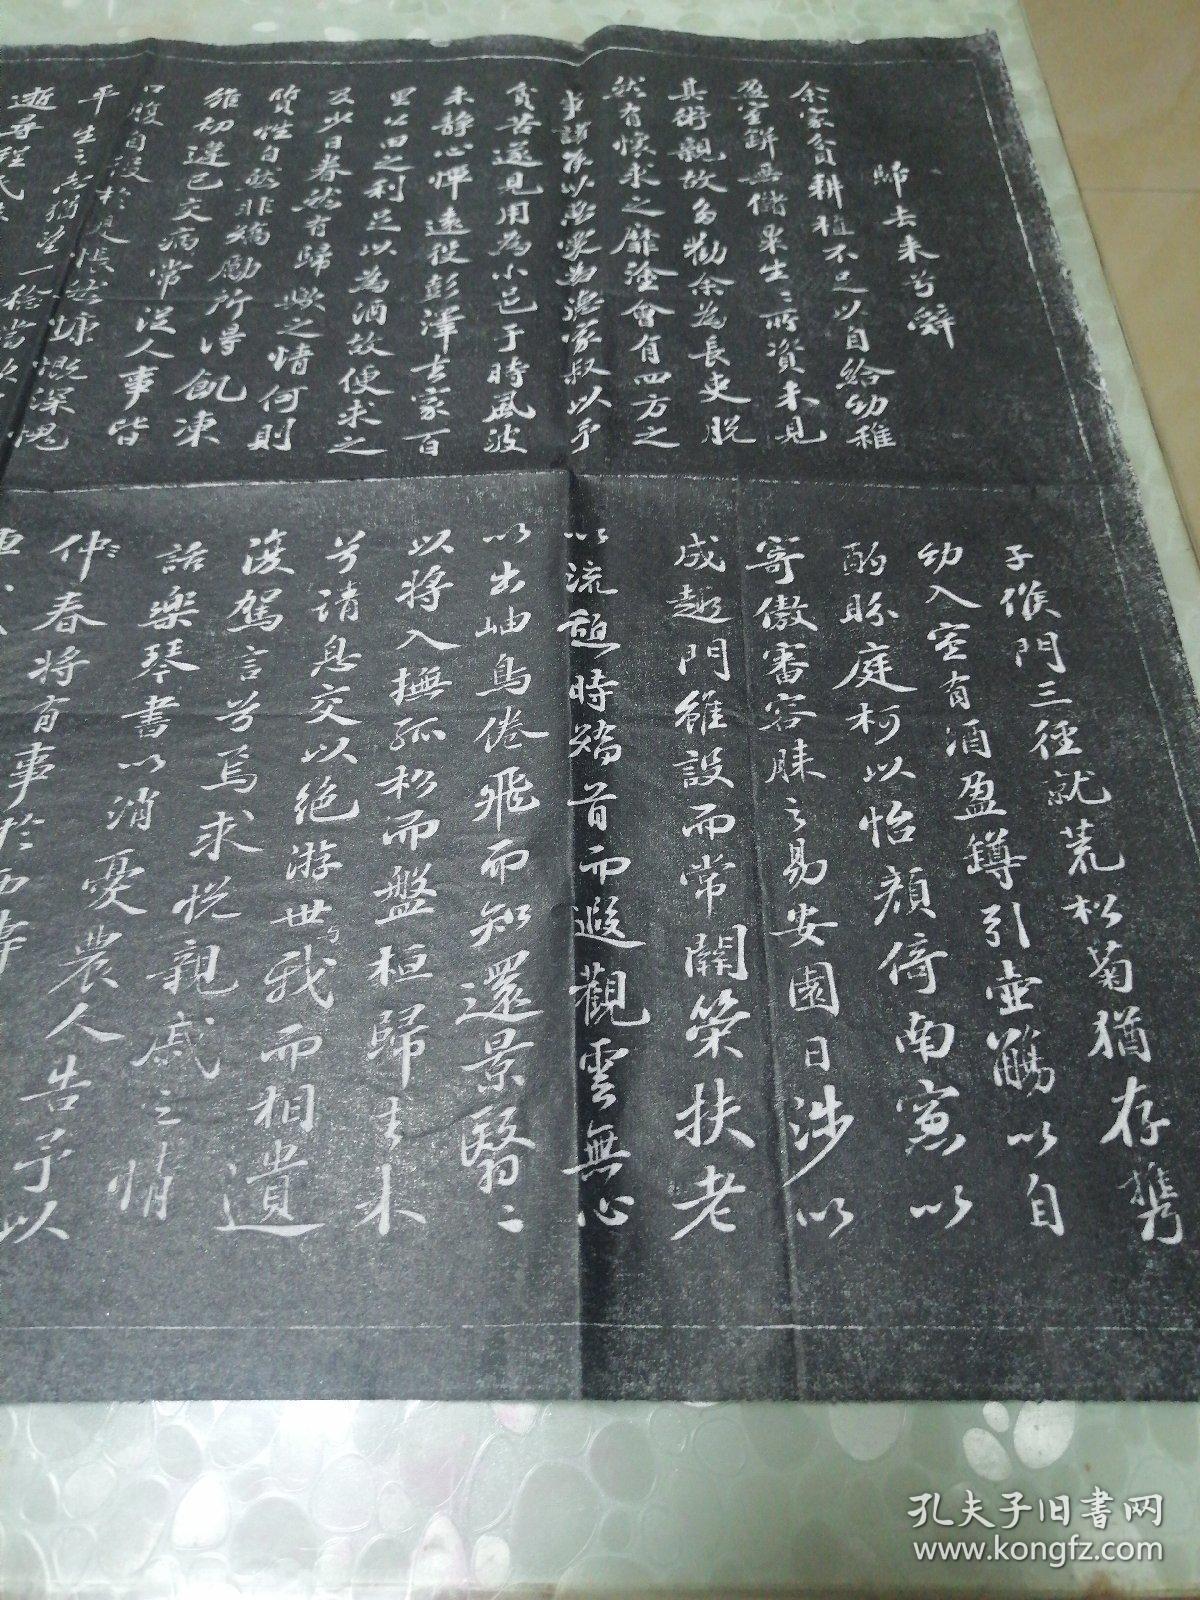 歸去来兮辭
余家貧耕植不足以自給幼稚
盈室缾無儲粟生〻所資未見
其術親故多勸余為長吏脫
然有懷求之靡塗會有四方之
事諸侯以惠愛為德家叔以予
貧苦遂見用為小邑于時風波
未静心憚遠役彭澤去家百
里公田之利足以為酒故便求之
及少日眷然有歸歟之情何則
質性自然非矯勵所得飢凍
雖切違己交病常從人事皆
口腹自役於是悵然慷慨深愧
平生之志猶望一稔當
逝尋程氏
子候門三徑就荒松菊猶存携
幼入室有酒盈罇引壺觴以自
酌眄庭柯以怡顔倚南窓以
寄傲審容膝之易安園日涉以
成趣門雖設而常關策扶老
以流憩時矯首而遐觀雲無心
以出岫鳥倦飛而知還景翳〻
以将入撫孤松而盤桓歸去来
兮請息交以绝游世与我而相遺
復駕言兮焉求悦親戚之情
話樂琴書以消憂農人告予以
仲春将有事於西疇
孔夫子旧书网
www.kongfz.com